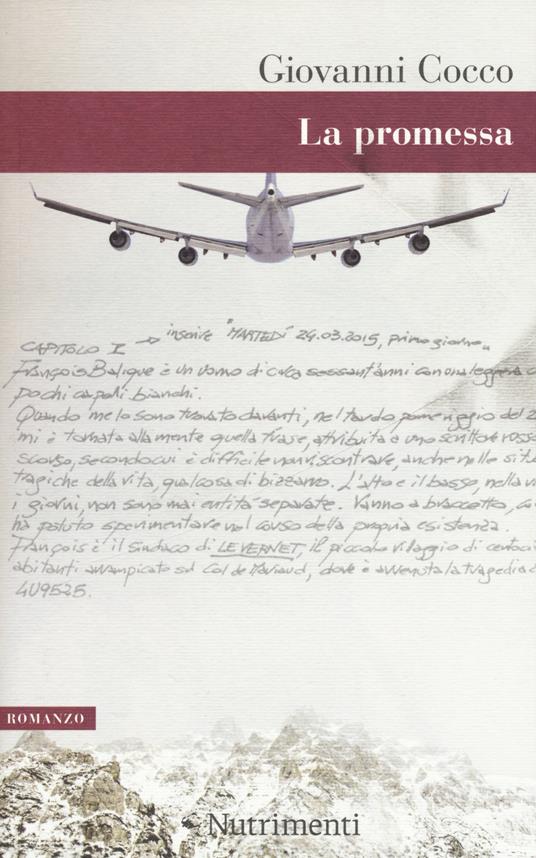 Giovanni Cocco
La promessa
CAPITOLO I → inserire "MARTEDÌ" 24.03.2015, primo giorno"
François Balique è un uomo di circa sessant'anni con una leggera
pochi capelli bianchi.
Quando me lo sono trovato davanti, nel tardo pomeriggio del 2
mi è tornata alla mente quella frase, attribuita a uno scrittore russo
scorso, secondo cui è difficile non riscontrare, anche nelle situ
tragiche della vita, qualcosa di bizzarro. L'alto e il basso, nella
i giorni, non sono mai entità separate. Vanno a braccetto, co
ha potuto sperimentare nel corso della propria esistenza.
François è il sindaco di LE VERNET, il piccolo villaggio di
abitanti arrampicato sul Col de Mariaud, dove è avvenuta la tragedia d
4U9525.
ROMANZO
Nutrimenti